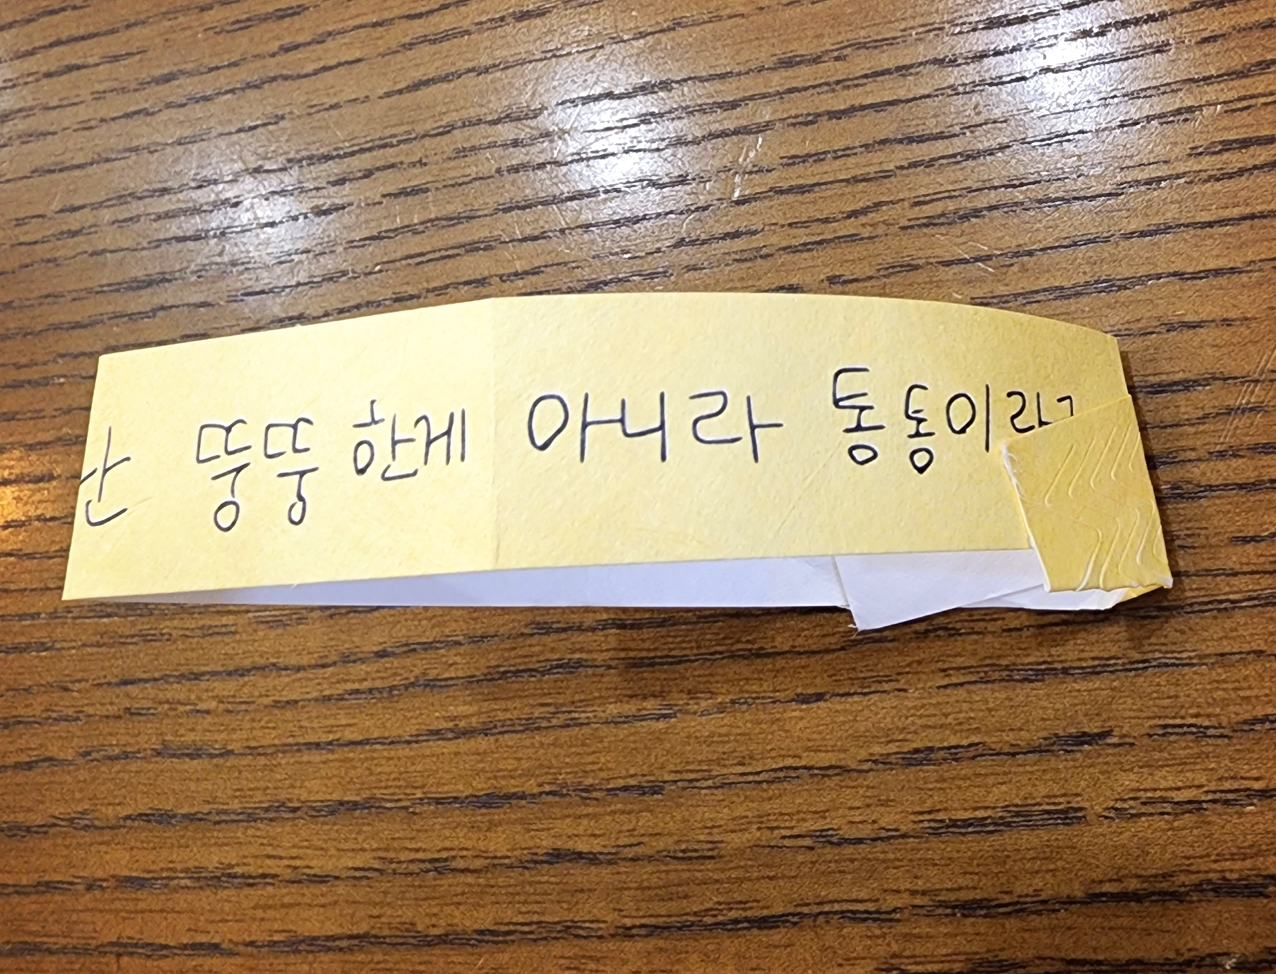 뚱뚱한게 아니라 통통이라